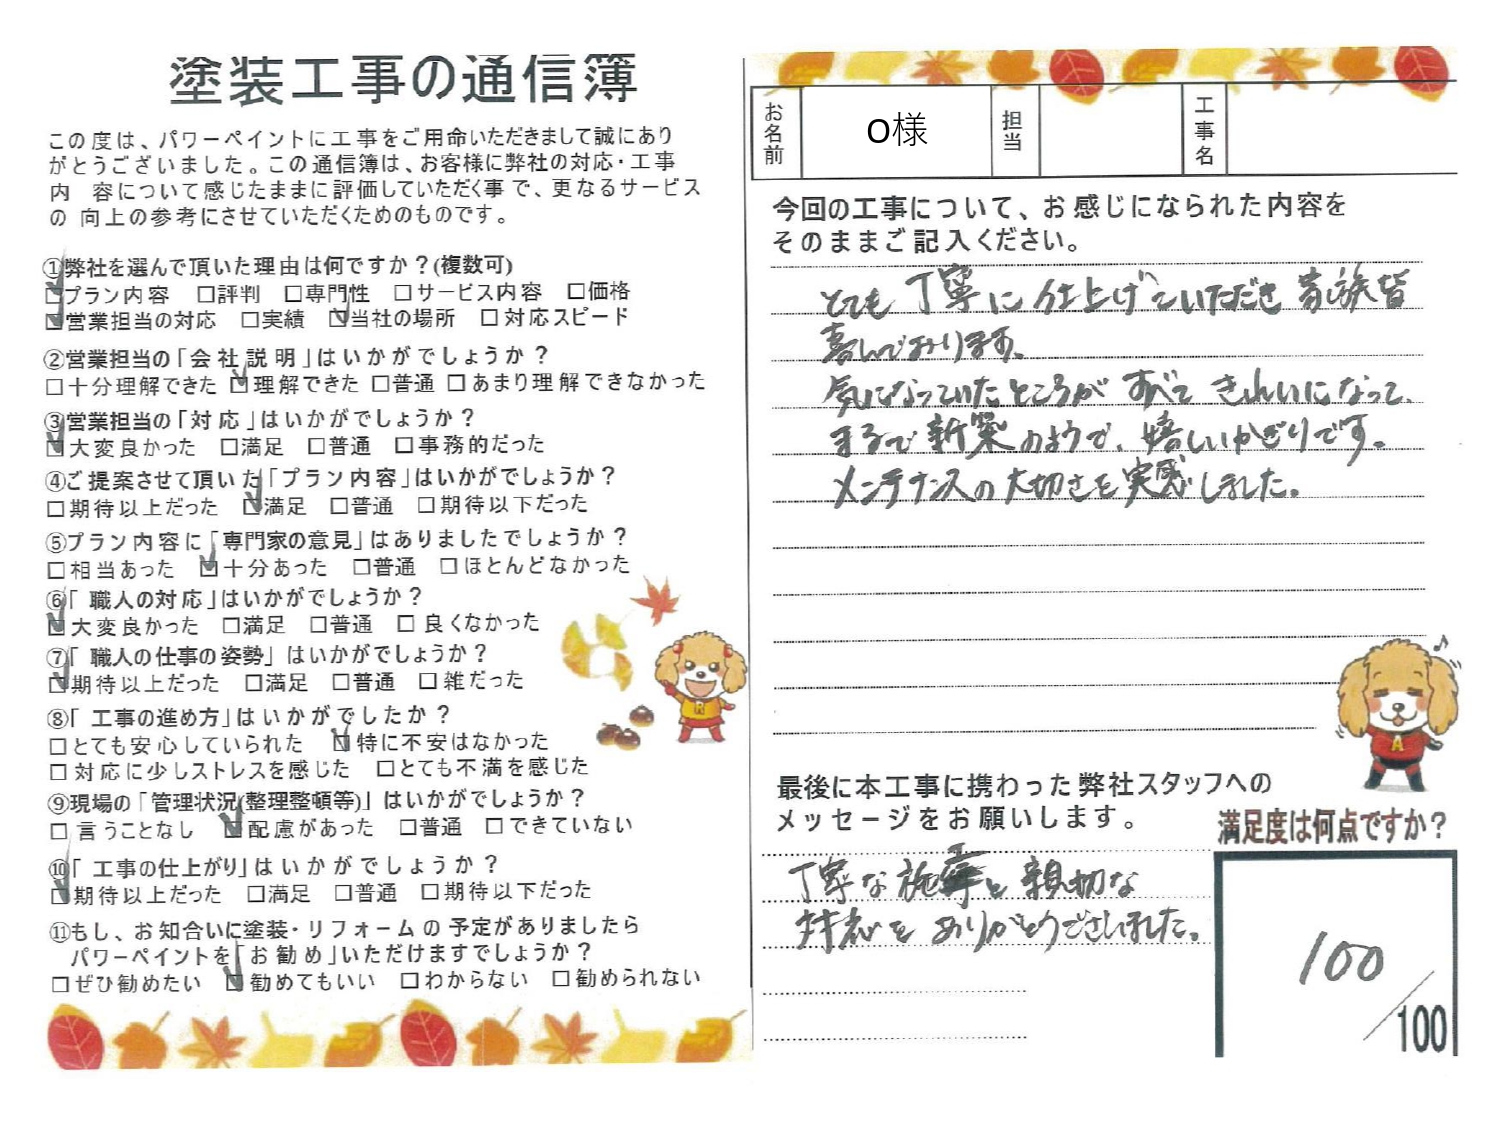 塗装工事の通信簿
この度は、パワーペイントに工事をご用命いただきまして誠にあり
がとうございました。この通信簿は、お客様に弊社の対応・工事
内 容について感じたままに評価していただく事で、更なるサービス
の 向上の参考にさせていただくためのものです。
①弊社を選んで頂いた理由は何ですか？(複数可)
☑プラン内容 □評判 □専門性 □サービス内容 □価格
☑営業担当の対応 □実績 ☑当社の場所 □対応スピード
②営業担当の「会社説明」はいかがでしょうか？
□十分理解できた ☑理解できた □普通 □あまり理解できなかった
③営業担当の「対応」はいかがでしょうか？
☑大変良かった □満足 □普通 □事務的だった
④ご提案させて頂いた「プラン内容」はいかがでしょうか？
□期待以上だった ☑満足 □普通 □期待以下だった
⑤プラン内容に「専門家の意見」はありましたでしょうか？
□相当あった ☑十分あった □普通 □ほとんどなかった
⑥「職人の対応」はいかがでしょうか？
☑大変良かった □満足 □普通 □良くなかった
⑦「職人の仕事の姿勢」はいかがでしょうか？
☑期待以上だった □満足 □普通 □雑だった
⑧「工事の進め方」はいかがでしたか？
□とても安心していられた ☑特に不安はなかった
□対応に少しストレスを感じた □とても不満を感じた
⑨現場の「管理状況(整理整頓等)」はいかがでしょうか？
□言うことなし ☑配慮があった □普通 □できていない
⑩「工事の仕上がり」はいかがでしょうか？
☑期待以上だった □満足 □普通 □期待以下だった
⑪もし、お知合いに塗装・リフォームの予定がありましたら
パワーペイントを「お勧め」いただけますでしょうか？
□ぜひ勧めたい ☑勧めてもいい □わからない □勧められない
お名前 O様 担当 工事名
今回の工事について、お感じになられた内容を
そのままご記入ください。
とても丁寧に仕上げていただき家族皆
喜んでおります。
気になっていたところがすべてきれいになって、
まるで新築のようで、嬉しいかぎりです。
メンテナンスの大切さを実感しました。
A
最後に本工事に携わった弊社スタッフへの
メッセージをお願いします。
丁寧な施工と親切な
対応をありがとうございました。
満足度は何点ですか？
100
/100